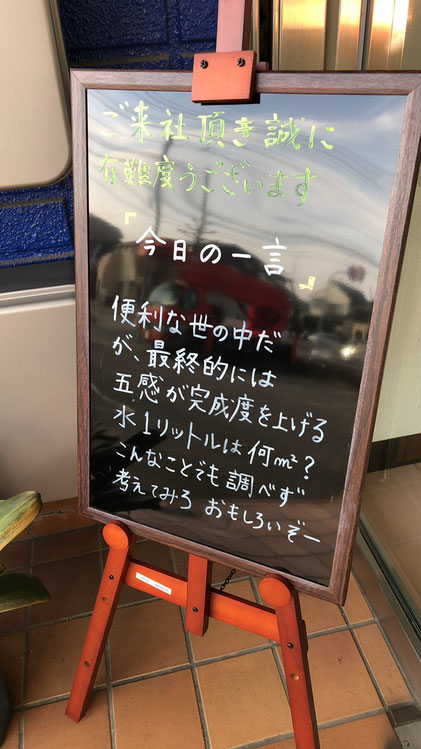 ご来社頂き誠に
有難度うございます
『今日の一言』
便利な世の中だ
が、最終的には
五感が完成度を上げる
水1リットルは何m²？
こんなことでも調べず
考えてみろ おもしろいぞー